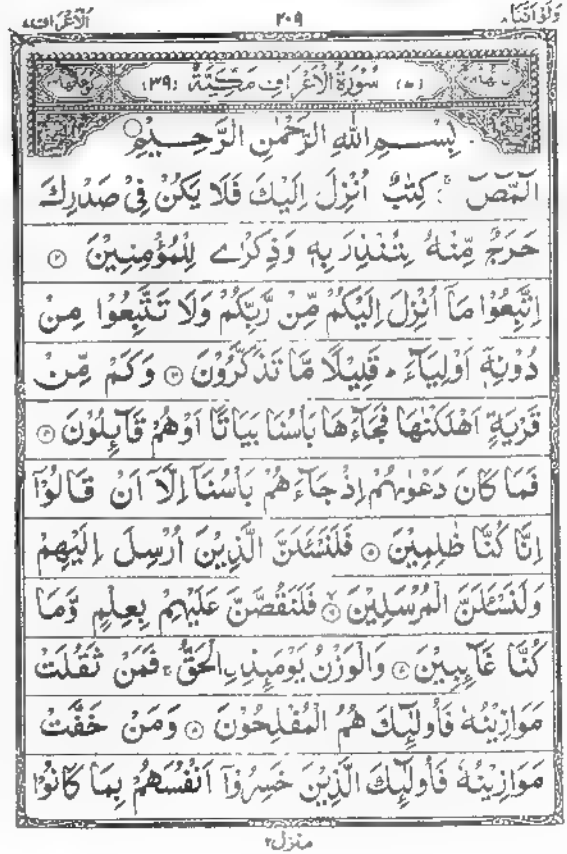 وَلَوْ اَنَّنَا ۸ ۲۰۹ اَلْاَعْرَاف ۷
(۷) سُوْرَةُ الْاَعْرَافِ مَكِّيَّةٌ (۳۹)
بِسْمِ اللّٰهِ الرَّحْمٰنِ الرَّحِيْمِ
الٓمّٓصٓ ۚ كِتٰبٌ اُنْزِلَ اِلَيْكَ فَلَا يَكُنْ فِيْ صَدْرِكَ
حَرَجٌ مِّنْهُ لِتُنْذِرَ بِهٖ وَذِكْرٰى لِلْمُؤْمِنِيْنَ ۲
اِتَّبِعُوْا مَاۤ اُنْزِلَ اِلَيْكُمْ مِّنْ رَّبِّكُمْ وَلَا تَتَّبِعُوْا مِنْ
دُوْنِهٖۤ اَوْلِيَآءَ ؕ قَلِيْلًا مَّا تَذَكَّرُوْنَ ۳ وَكَمْ مِّنْ
قَرْيَةٍ اَهْلَكْنٰهَا فَجَآءَهَا بَاْسُنَا بَيَاتًا اَوْ هُمْ قَآئِلُوْنَ ۴
فَمَا كَانَ دَعْوٰىهُمْ اِذْ جَآءَهُمْ بَاْسُنَاۤ اِلَّاۤ اَنْ قَالُوْۤا
اِنَّا كُنَّا ظٰلِمِيْنَ ۵ فَلَنَسْـَٔلَنَّ الَّذِيْنَ اُرْسِلَ اِلَيْهِمْ
وَلَنَسْـَٔلَنَّ الْمُرْسَلِيْنَ ۶ فَلَنَقُصَّنَّ عَلَيْهِمْ بِعِلْمٍ وَّمَا
كُنَّا غَآئِبِيْنَ ۷ وَالْوَزْنُ يَوْمَئِذِ ۨالْحَقُّ ۚ فَمَنْ ثَقُلَتْ
مَوَازِيْنُهٗ فَاُولٰٓئِكَ هُمُ الْمُفْلِحُوْنَ ۸ وَمَنْ خَفَّتْ
مَوَازِيْنُهٗ فَاُولٰٓئِكَ الَّذِيْنَ خَسِرُوْۤا اَنْفُسَهُمْ بِمَا كَانُوْا
منزل ۲